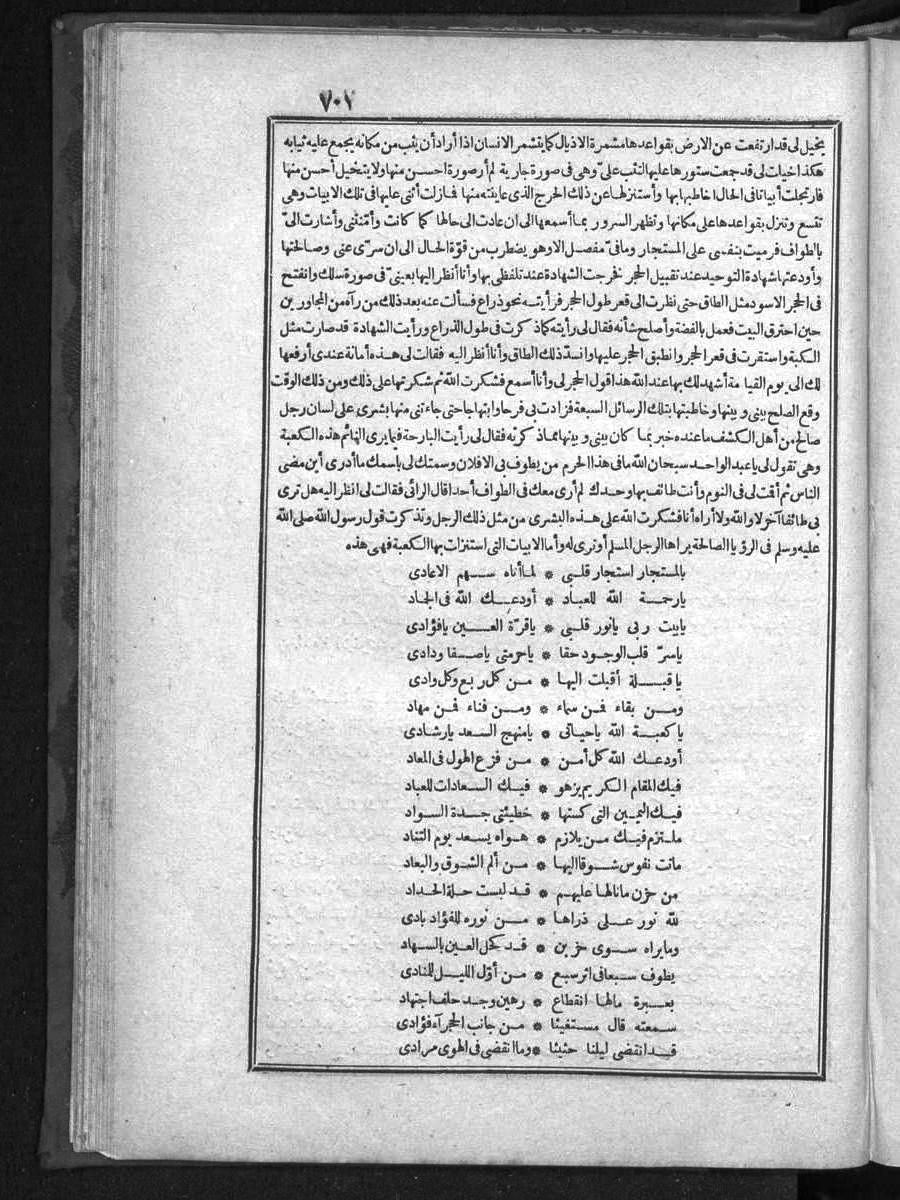 ٧٠١
يخيل لى قد ارتفعت عن الارض بقواعدها مشمرة الاذيال كما يتشمر الانسان اذا أراد أن يثب من مكانه يجمع عليه ثيابه
هكذا خيلت لى قد جمعت ستورها عليها لتثب علىّ وهى فى صورة جارية لم أر صورة احسن منها ولا يتخيل أحسن منها
فارتجلت أبياتا فى الحال اخاطبها بها وأستنزلها عن ذلك الحرج الذى عاينته منها فمازلت أثنى عليها فى تلك الابيات وهى
تتسع وتنزل بقواعدها على مكانها وتظهر السرور بما أسمعها الى ان عادت الى حالها كما كانت وأمّنتنى وأشارت الىّ
بالطواف فرميت بنفسى على المستجار وما فىّ مفصل الا وهو يضطرب من قوّة الحال الى ان سرّى عنى وصالحتها
وأودعتها شهادة التوحيد عند تقبيل الحجر فخرجت الشهادة عند تلفظى بها وأنا أنظر اليها بعينىّ فى صورة سلك وانفتح
فى الحجر الاسود مثل الطاق حتى نظرت الى قعر طول الحجر فرأيته نحو ذراع فسألت عنه بعد ذلك من رآه من المجاورين
حين احترق البيت فعمل بالفضة وأصلح شأنه فقال لى رأيته كما ذكرت فى طول الذراع ورأيت الشهادة قد صارت مثل
الكبة واستقرت فى قعر الحجر وانطبق الحجر عليها وانسدّ ذلك الطاق وأنا أنظر اليه فقالت لى هذه أمانة عندى أرفعها
لك الى يوم القيامة أشهد لك بها عند الله هذا قول الحجر لى وأنا أسمع فشكرت الله ثم شكرتها على ذلك ومن ذلك الوقت
وقع الصلح بينى وبينها وخاطبتها بتلك الرسائل السبعة فزادت بى فرحا وابتهاجا حتى جاءتنى منها بشرى على لسان رجل
صالح من أهل الكشف ما عنده خبر بما كان بينى وبينها مما ذكرته فقال لى رأيت البارحة فيما يرى النائم هذه الكعبة
وهى تقول لى يا عبد الواحد سبحان الله ما فى هذا الحرم من يطوف بى الا فلان وسمتك لى باسمك ما أدرى أين مضى
الناس ثم أقمت لى فى النوم وأنت طائف بها وحدك لم أرى معك فى الطواف أحدا قال الرائى فقالت لى انظر اليه هل ترى
بى طائفا آخر لا والله ولا أراه أنا فشكرت الله على هذه البشرى من مثل ذلك الرجل وتذكرت قول رسول الله صلى الله
عليه وسلم فى الرؤيا الصالحة يراها الرجل المسلم أو ترى له وأما الابيات التى استنزلت بها الكعبة فهى هذه
بالمستجار استجار قلبى * لما أتاه سهم الاعادى
يا رحمة الله للعباد * أودعك الله فى الجماد
يا بيت ربى يا نور قلبى * يا قرّة العين يا فؤادى
يا سرّ قلب الوجود حقا * يا حرمتى يا صفا ودادى
يا قبلة أقبلت اليها * من كل ربع وكل وادى
ومن بقاء فمن سماء * ومن فناء فمن مهاد
يا كعبة الله يا حياتى * يا منهج السعد يا رشادى
أودعك الله كل أمن * من فزع الهول فى المعاد
فيك المقام الكريم يزهو * فيك السعادات للعباد
فيك اليمين التى كستها * خطيئتى جدة السواد
ملتزم فيك من يلازم * هواه يسعد يوم التناد
ماتت نفوس شوقا اليها * من ألم الشوق والبعاد
من حزن ما نالها عليهم * قد لبست حلة الحداد
لله نور على ذراها * من نوره للفؤاد بادى
وما يراه سوى حزين * قد كحل العين بالسهاد
يطوف سبعا فى اثر سبع * من أوّل الليل للمنادى
بعبرة مالها انقطاع * رهين وجد حلف اجتهاد
سمعته قال مستغيثا * من جانب الحجر آه فؤادى
قد انقضى ليلنا حثيثا * وما انقضى فى الهوى مرادى